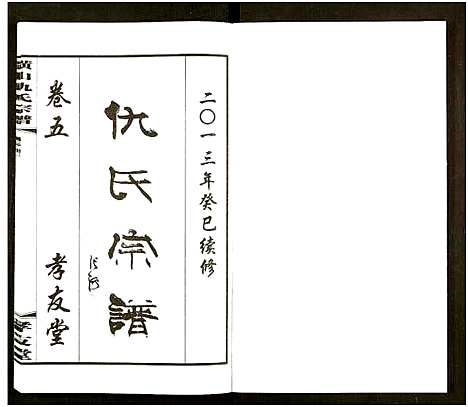 二〇一三年癸巳续修
仇氏宗譜
卷五
孝友堂
孝友堂